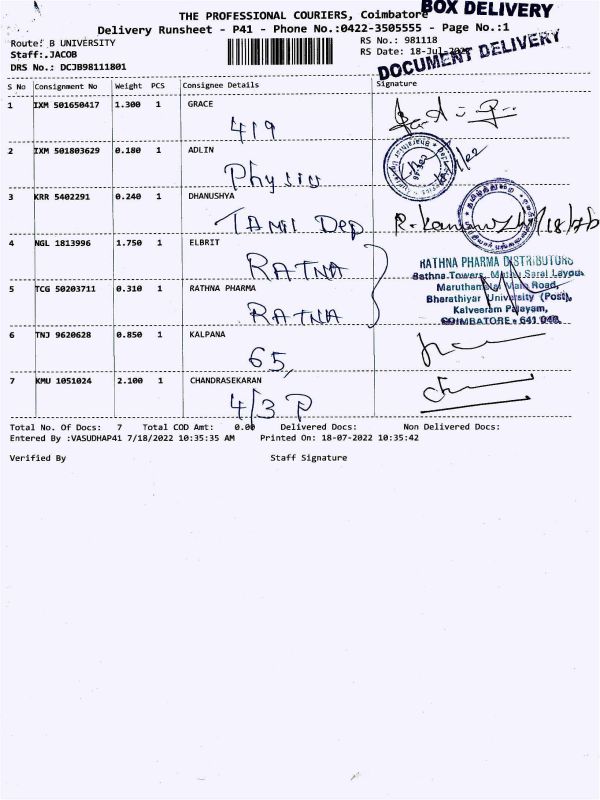 THE PROFESSIONAL COURIERS, Coimbatore
BOX DELIVERY
Delivery Runsheet - P41 - Phone No.:0422-3505555 - Page No.:1
Route: B UNIVERSITY
RS No.: 981118
Staff:.JACOB
RS Date: 18-Jul-2022
DRS No.: DCJB98111801
DOCUMENT DELIVERY
S No Consignment No Weight PCS Consignee Details Signature
1 IXM 501650417 1.300 1 GRACE
419
2 IXM 501803629 0.180 1 ADLIN
3 KRR 5402291 0.240 1 DHANUSHYA
TAMIL Dep
4 NGL 1813996 1.750 1 ELBRIT
RATNA
5 TCG 50203711 0.310 1 RATHNA PHARMA
RATNA
RATHNA PHARMA DISTRIBUTORS
Rathna Towers,
Main Road,
Bharathiyar University (Post),
Kalveeram Palayam,
COIMBATORE - 641 046.
6 TNJ 9620628 0.850 1 KALPANA
65,
7 KMU 1051024 2.100 1 CHANDRASEKARAN
4/3 P
Total No. Of Docs: 7 Total COD Amt: 0.00 Delivered Docs: Non Delivered Docs:
Entered By :VASUDHAP41 7/18/2022 10:35:35 AM Printed On: 18-07-2022 10:35:42
Verified By Staff Signature